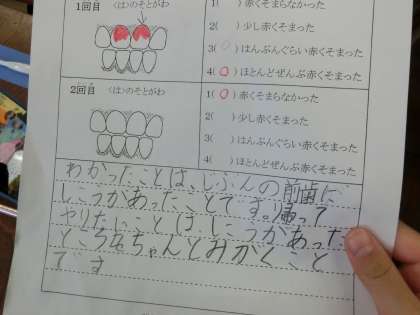 1回目 〈は〉のそとがわ
1( )赤くそまらなかった
2( )少し赤くそまった
3( )はんぶんぐらい赤くそまった
4(○)ほとんどぜんぶ赤くそまった
2回目 〈は〉のそとがわ
1(○)赤くそまらなかった
2( )少し赤くそまった
3( )はんぶんぐらい赤くそまった
4( )ほとんどぜんぶ赤くそまった
わかったことは、じぶんの前歯に
しこうがあったことです。帰って
やりたいことは、しこうがあった
ところをちゃんとみがくこと
です